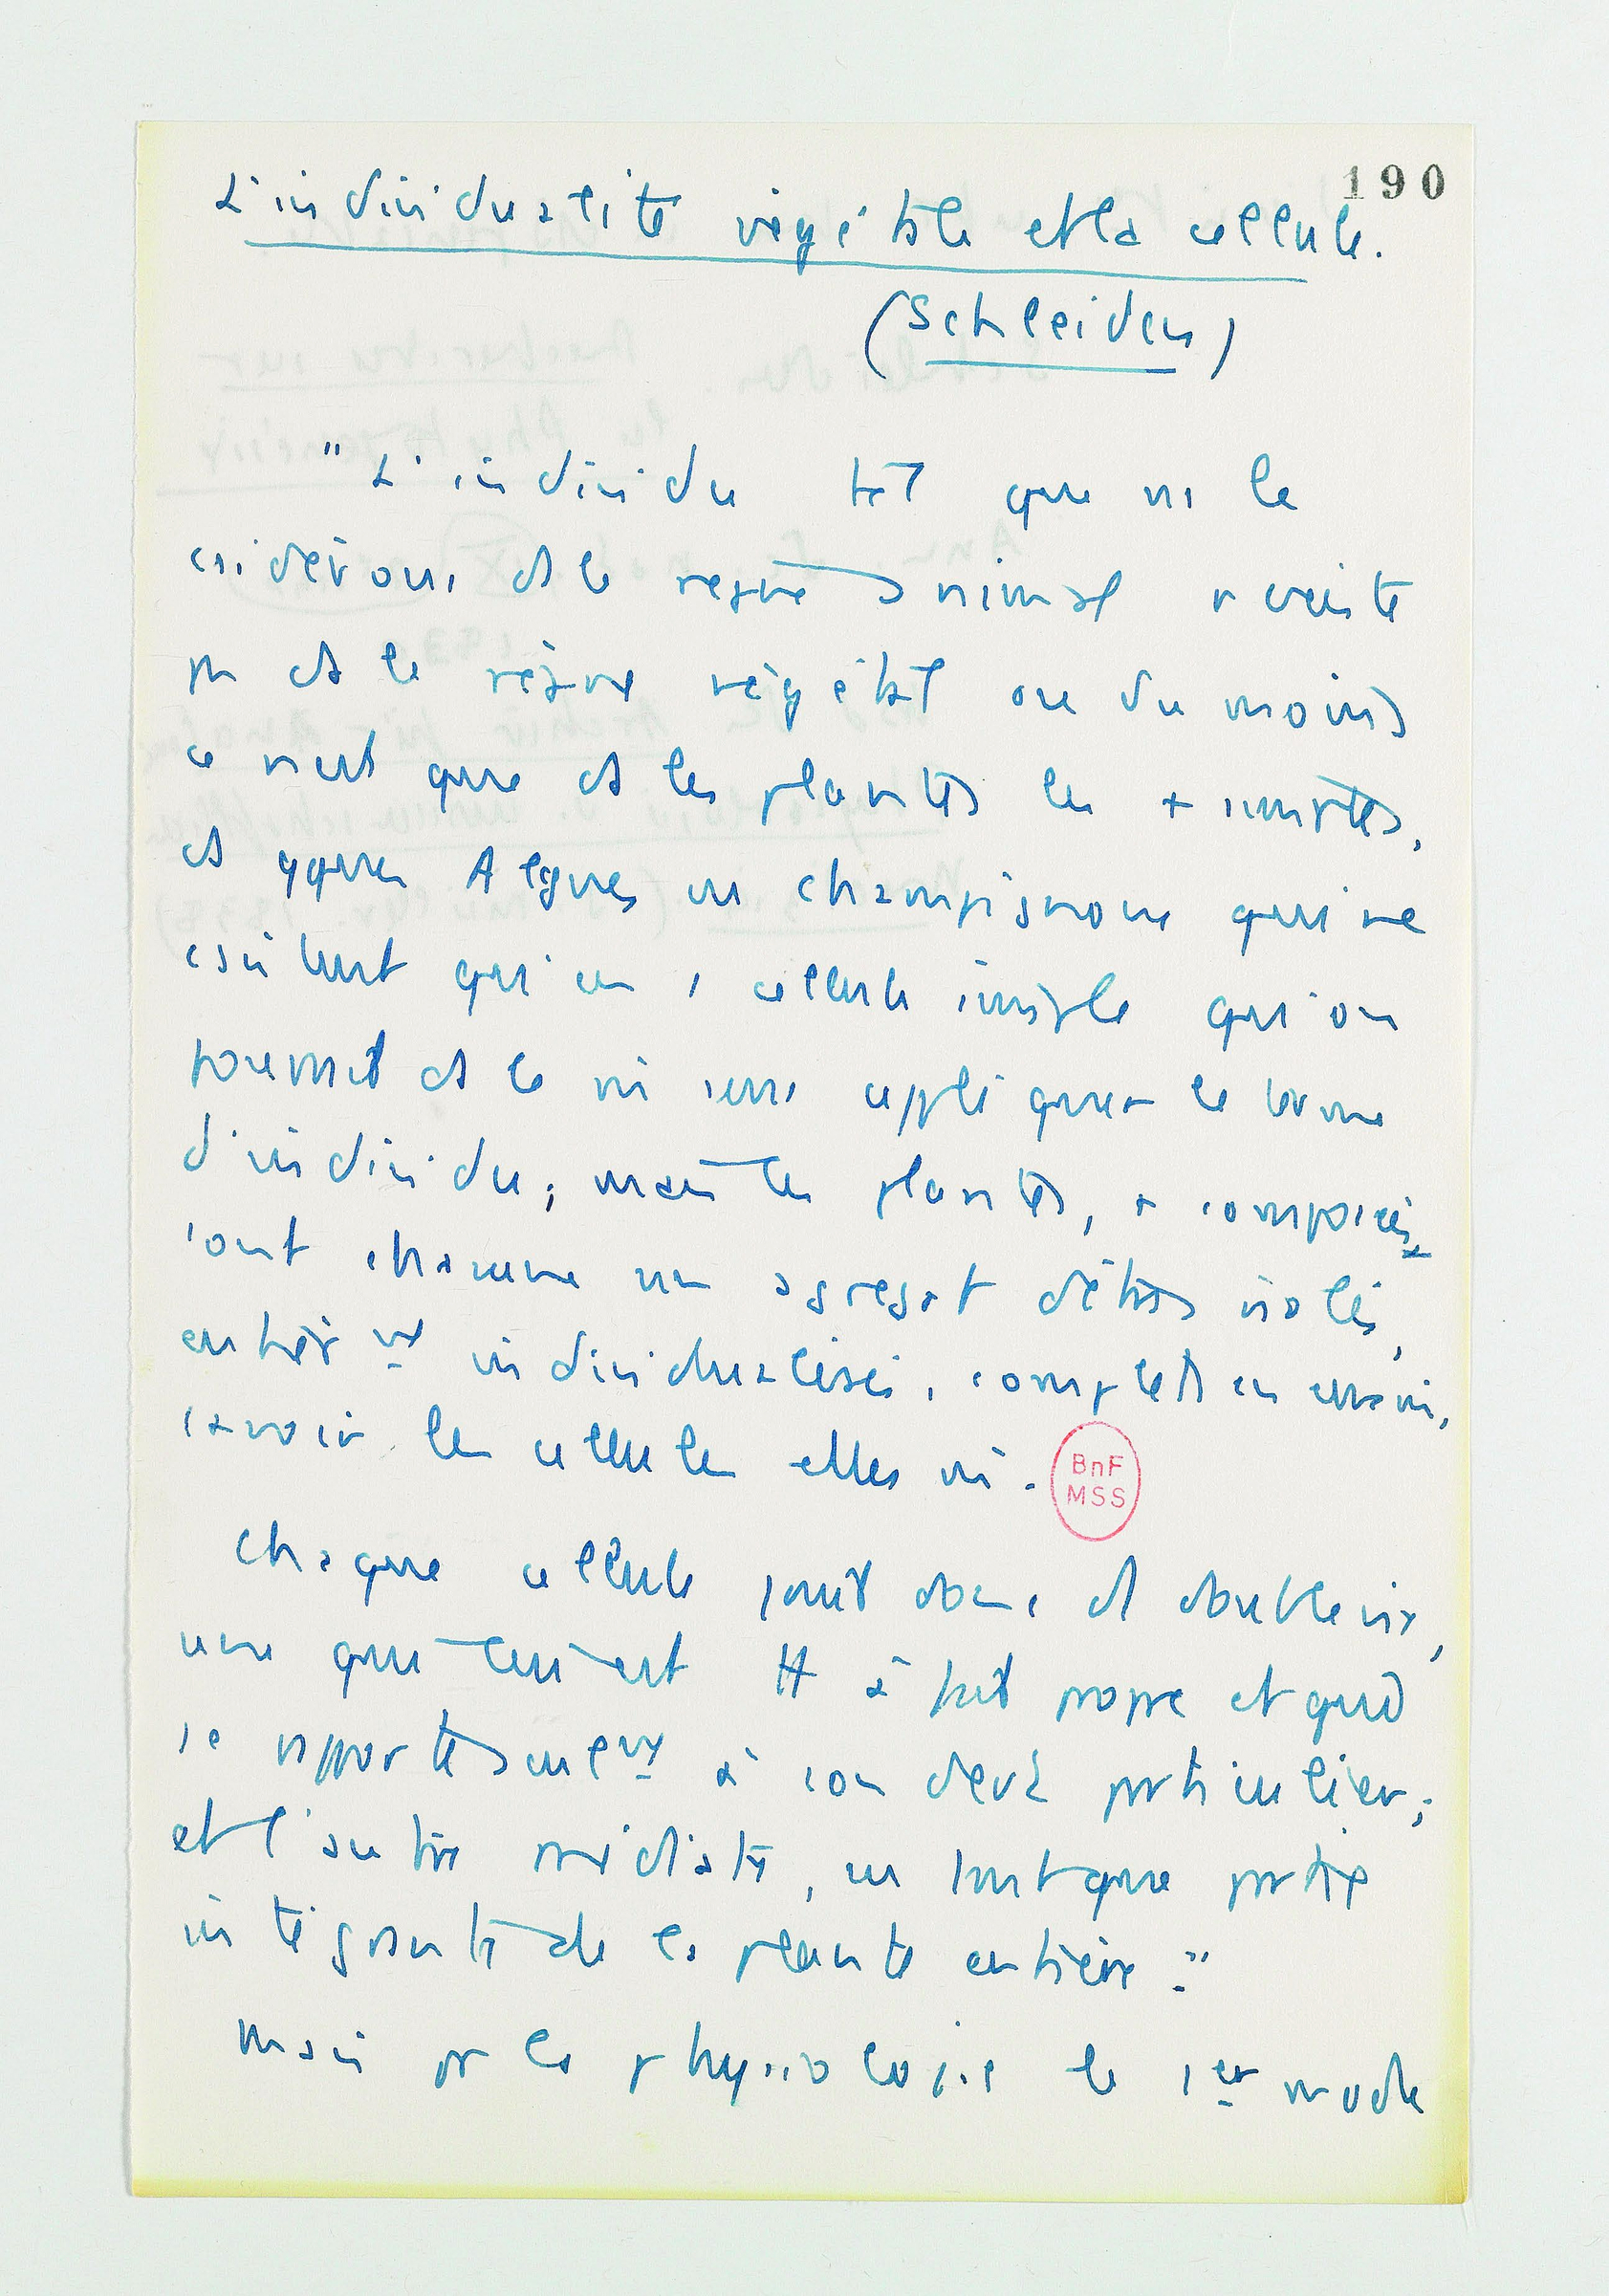 190
L'individualité végétale et la cellule.
(Schleiden)
"L'individu tel que ns le
csidérons ds le règne animal n'existe
pas ds le règne végétal ou du moins
ce n'est que ds les plantes les + simples,
ds qques Algues ou champignons qui ne
csistent qu'en 1 cellule simple qu'on
pourrait ds le m sens appliquer le terme
d'individu; mais les plantes, + composées
sont chacune un agrégat d'êtres isolés,
entièrt individualisés, complets en eux-m,
savoir les cellules elles m.
BnF
MSS
Chaque cellule jouit donc d double vie,
une qui lui est tt à fait propre et qui
se rapporte seulet à son devt particulier;
et l'autre médiate, en tant que partie
intégrante de la plante entière."
Mais pr la physiologie le 1er mode